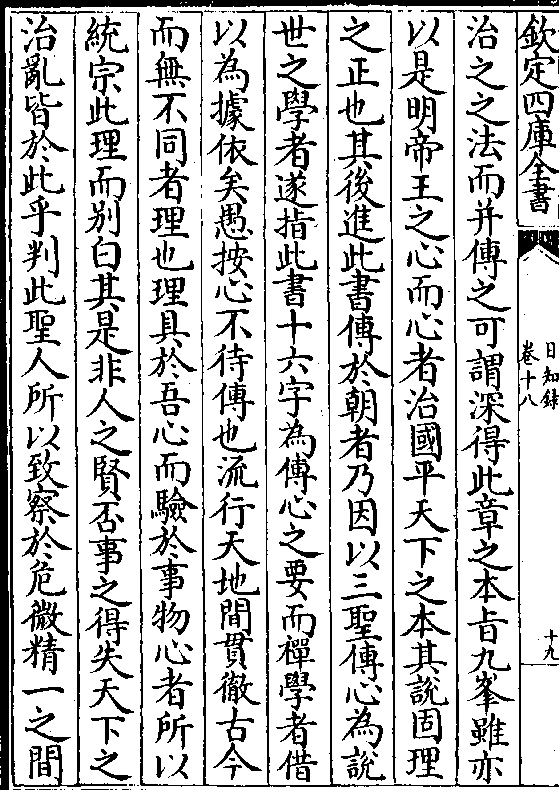 欽定四庫全書
日知錄
卷十八
十九
治之之法而并傳之可謂深得此章之本旨九峯雖亦
以是明帝王之心而心者治國平天下之本其説固理
之正也其後進此書傳於朝者乃因以三聖傳心為説
世之學者遂指此書十六字為傳心之要而禪學者借
以為據依矣愚按心不待傳也流行天地間貫徹古今
而無不同者理也理具於吾心而驗於事物心者所以
統宗此理而别白其是非人之賢否事之得失天下之
治亂皆於此乎判此聖人所以致察於危微精一之間